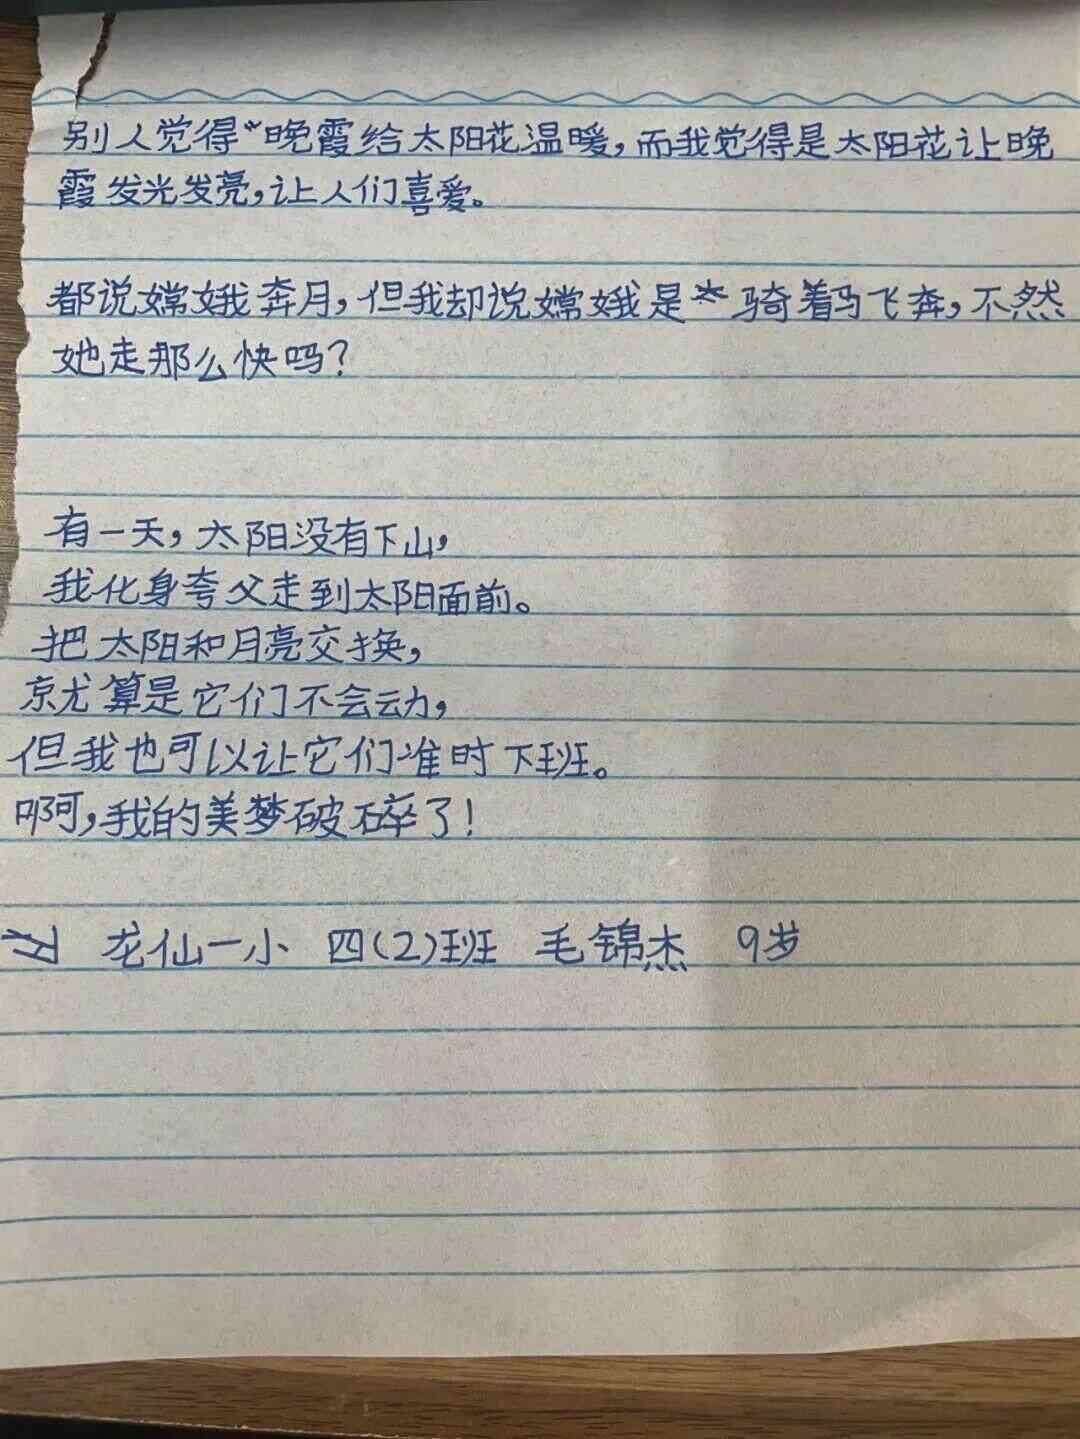 别人觉得晚霞给太阳花温暖,而我觉得是太阳花让晚
霞发光发亮,让人们喜爱。
都说嫦娥奔月,但我却说嫦娥是骑着马飞奔,不然
她走那么快吗?
有一天,太阳没有下山,
我化身夸父走到太阳面前。
把太阳和月亮交换,
就算是它们不会动,
但我也可以让它们准时下班。
啊,我的美梦破碎了!
龙仙一小 四(2)班 毛锦杰 9岁